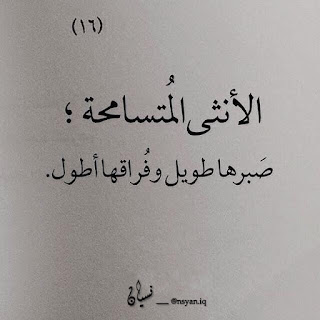 (١٦)
الأنثى المُتسامحة ؛
صَبرها طويل وفُراقها أطول.
نسيان __ @nsyan.iq